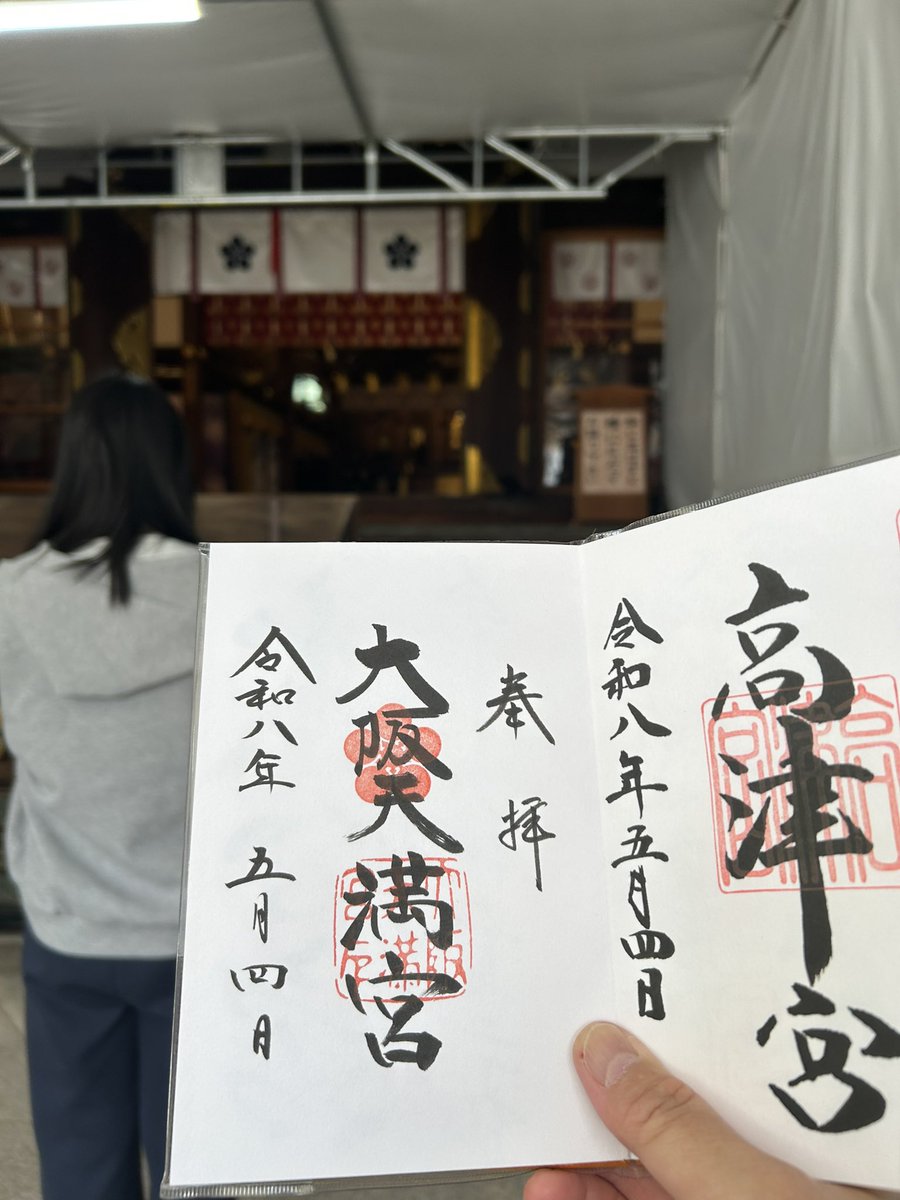 高津宮
令和八年五月四日
奉拝
大阪天満宮
令和八年 五月四日